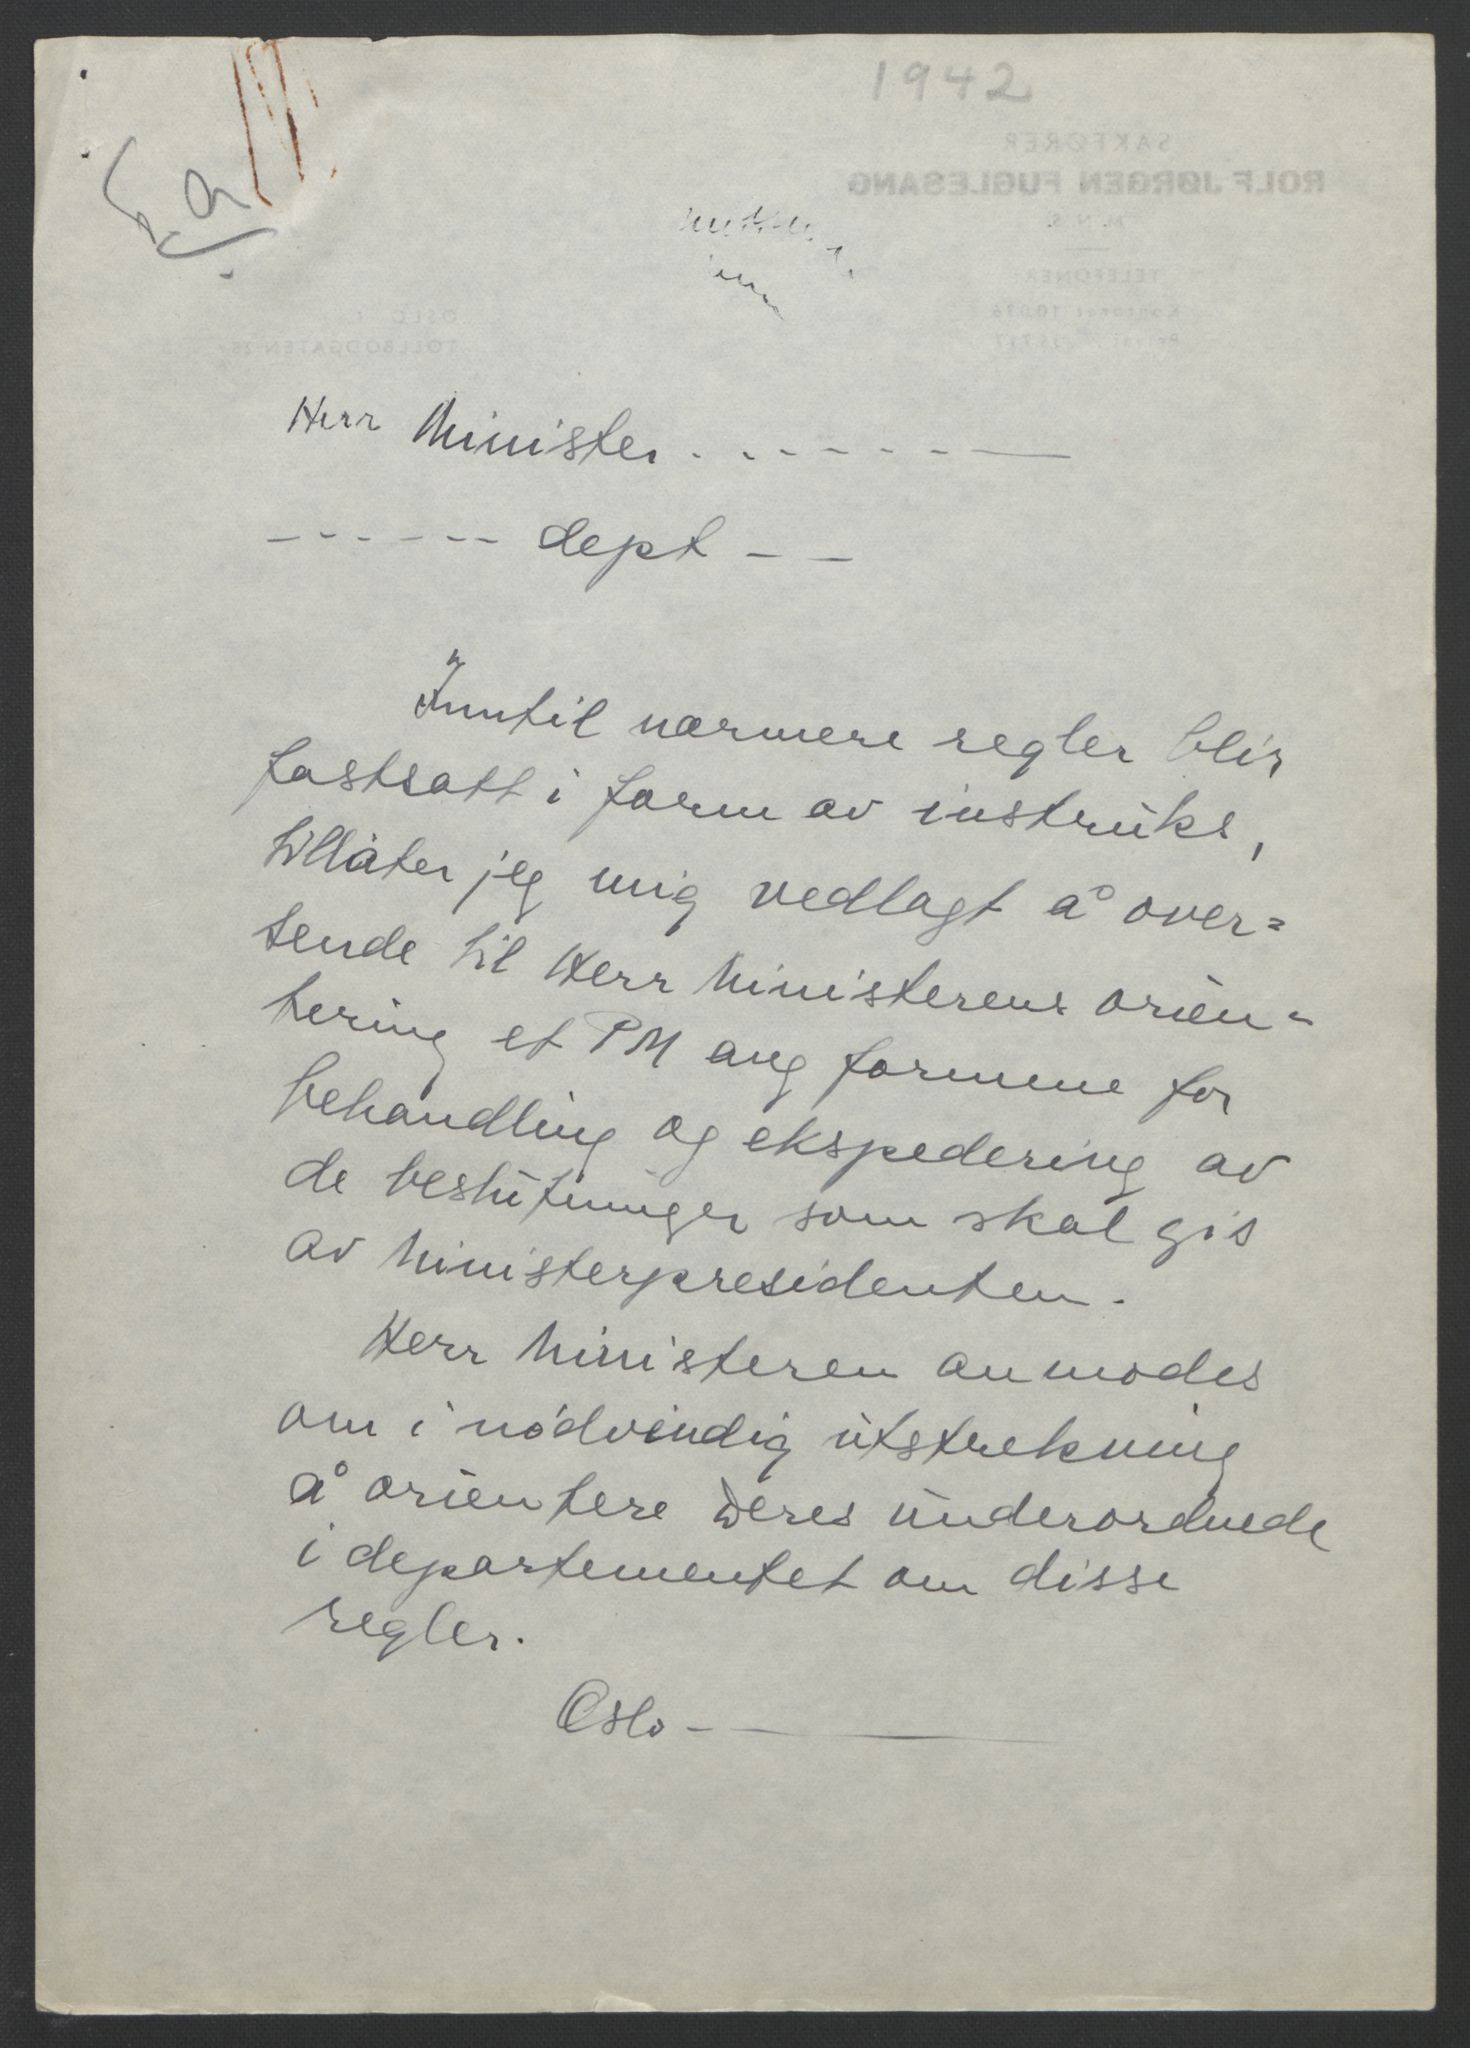 1942
SAKFØRER
ROLF JØRGEN FUGLESANG
M. N. S.
TELEFONER
OSLO
TOLLBODGATEN
Herr Minister . . - - - - - —
- - - - - - dept - -
Inntil nærmere regler blir
fastsatt i form av instruks,
tillåter jeg mig vedlagt å over=
sende til Herr Ministerens orien-
tering et PM ang formene for
behandling og ekspedering av
de beslutninger som skal gis
av Ministerpresidenten.
Herr Ministeren anmodes
om i nødvendig utstrekning
å orientere Deres underordnede
i departementet om disse
regler.
Oslo - —